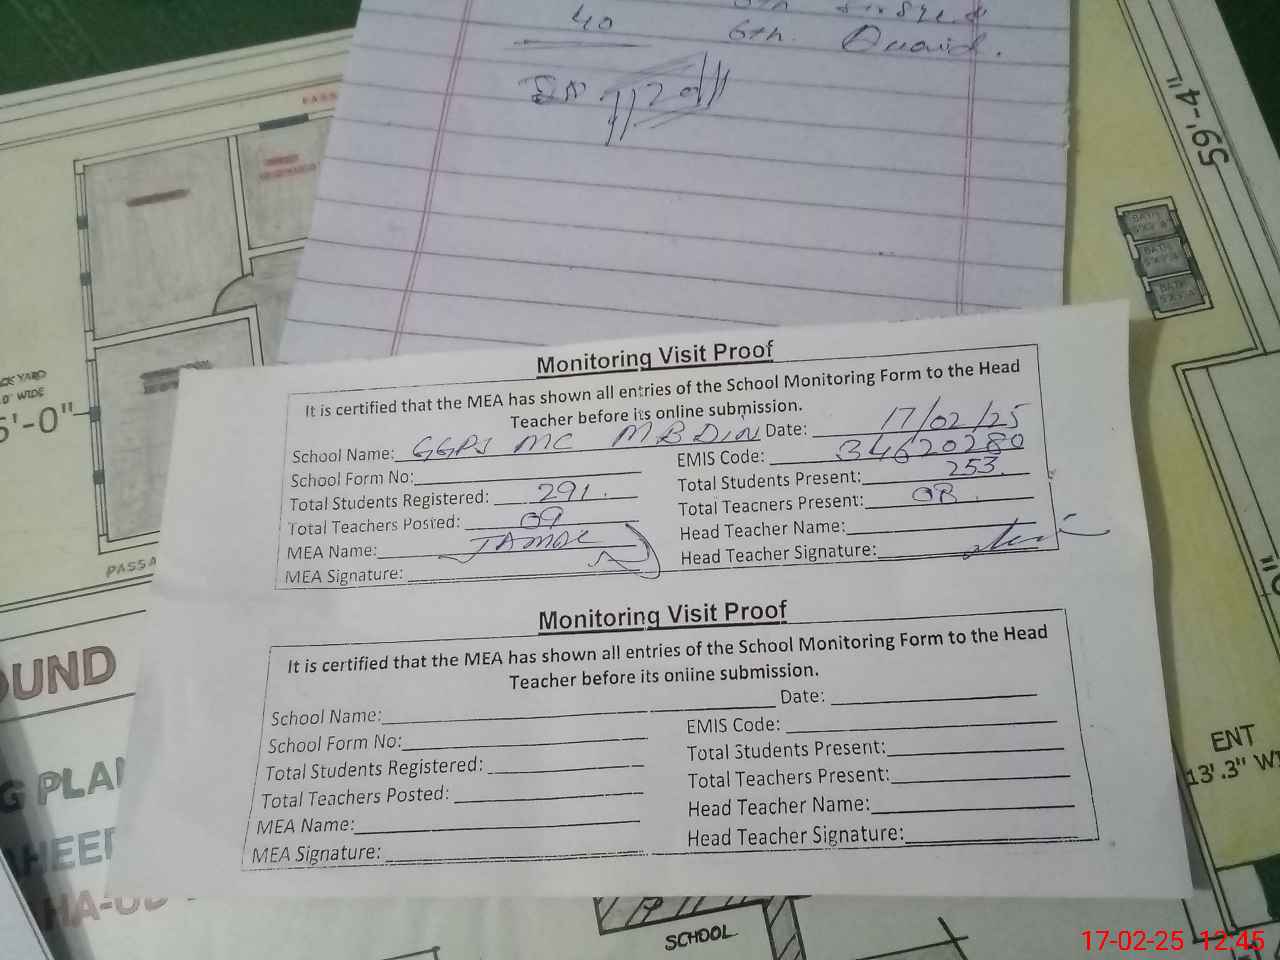 40
6th. Quaid.
59'-4"
BATH
BATH
BATH
5'-0"
PASSA
OUND
G PLAN
AHEER
HA-UD
Monitoring Visit Proof
It is certified that the MEA has shown all entries of the School Monitoring Form to the Head
Teacher before its online submission.
School Name: GGPS MC MBDIN Date: 17/02/25
School Form No: EMIS Code: 34620280
Total Students Registered: 291. Total Students Present: 253
Total Teachers Posted: 09 Total Teachers Present: 08.
MEA Name: JAMAL Head Teacher Name:
MEA Signature: Head Teacher Signature:
Monitoring Visit Proof
It is certified that the MEA has shown all entries of the School Monitoring Form to the Head
Teacher before its online submission.
School Name: Date:
School Form No: EMIS Code:
Total Students Registered: Total Students Present:
Total Teachers Posted: Total Teachers Present:
MEA Name: Head Teacher Name:
MEA Signature: Head Teacher Signature:
ENT
13'.3" WI
SCHOOL
17-02-25 12:45